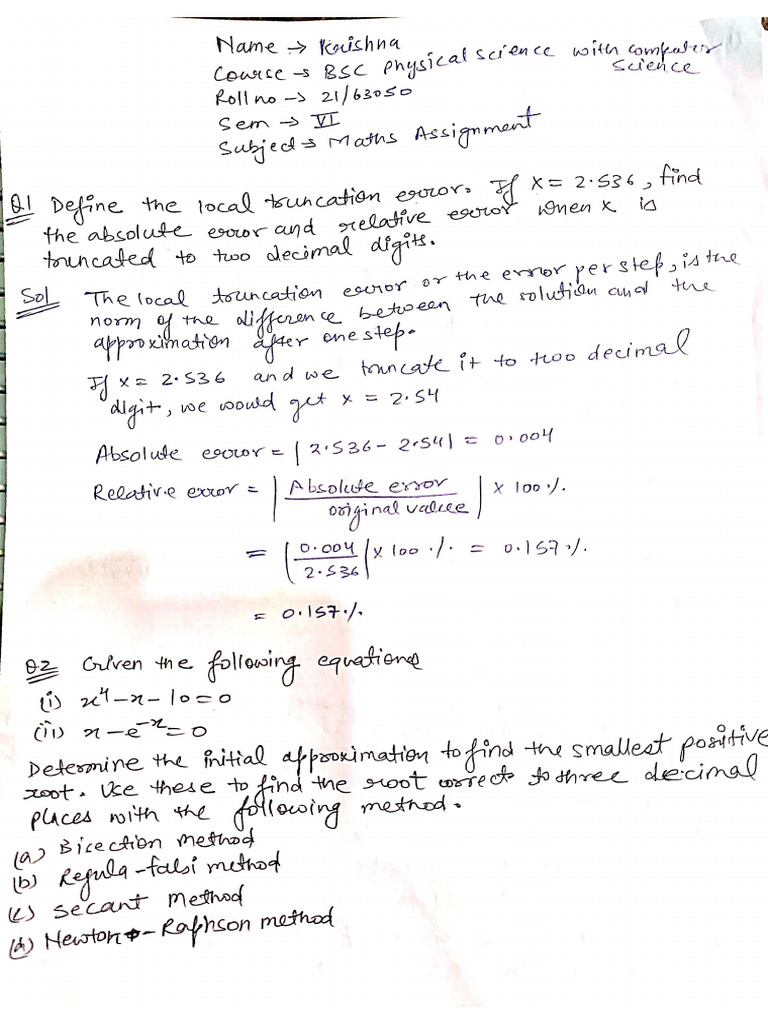 Name → Krishna
Course → BSC Physical science with computer
science
Roll no → 21/63050
Sem → VI
Subject → Maths Assignment
Q1 Define the local truncation error. If x = 2.536, find
the absolute error and relative error when x is
truncated to two decimal digits.
Sol The local truncation error or the error per step, is the
norm of the difference between the solution and the
approximation after one step.
If x = 2.536 and we truncate it to two decimal
digit, we would get x = 2.54
Absolute error = |2.536 - 2.54| = 0.004
Relative error = | Absolute error / original value | × 100 %.
= | 0.004 / 2.536 | × 100 %. = 0.157 %.
= 0.157 %.
Q2 Given the following equations
(i) x⁴ - x - 10 = 0
(ii) x - e⁻ˣ = 0
Determine the initial approximation to find the smallest positive
root. Use these to find the root correct to three decimal
places with the following method.
(a) Bicection method
(b) Regula-falsi method
(c) Secant Method
(d) Newton - Raphson method